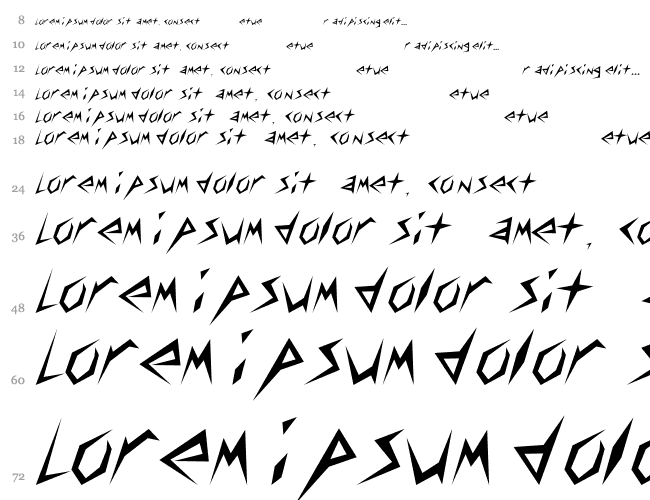 8 Lorem ipsum dolor sit amet, consect etue r adipiscing elit...
10 Lorem ipsum dolor sit amet, consect etue r adipiscing elit...
12 Lorem ipsum dolor sit amet, consect etue r adipiscing elit...
14 Lorem ipsum dolor sit amet, consect etue
16 Lorem ipsum dolor sit amet, consect etue
18 Lorem ipsum dolor sit amet, consect etue
24 Lorem ipsum dolor sit amet, consect
36 Lorem ipsum dolor sit amet, co
48 Lorem ipsum dolor sit
60 Lorem ipsum dolor
72 Lorem ipsum dolo